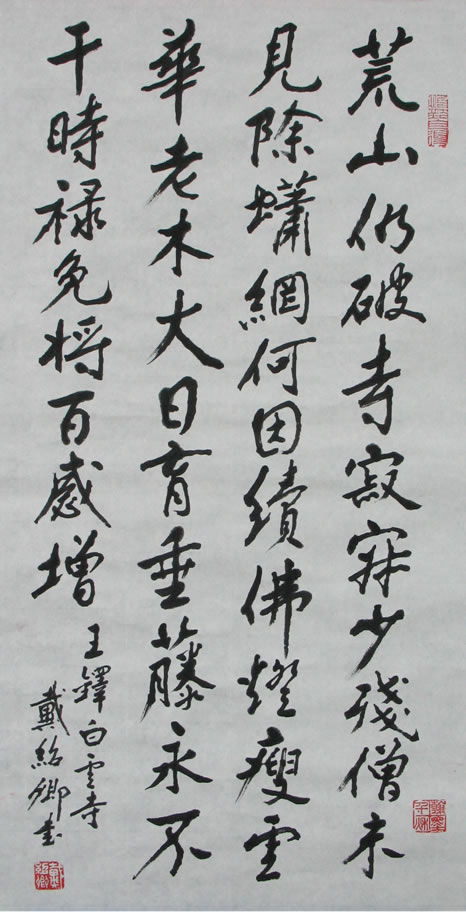 荒山仍破寺寂寐少殘僧未
見除蠨網何因續佛燈瘦雲
華老木大日育垂藤永不
干時禄免將百感增
王鐸白雲寺
戴紹卿書